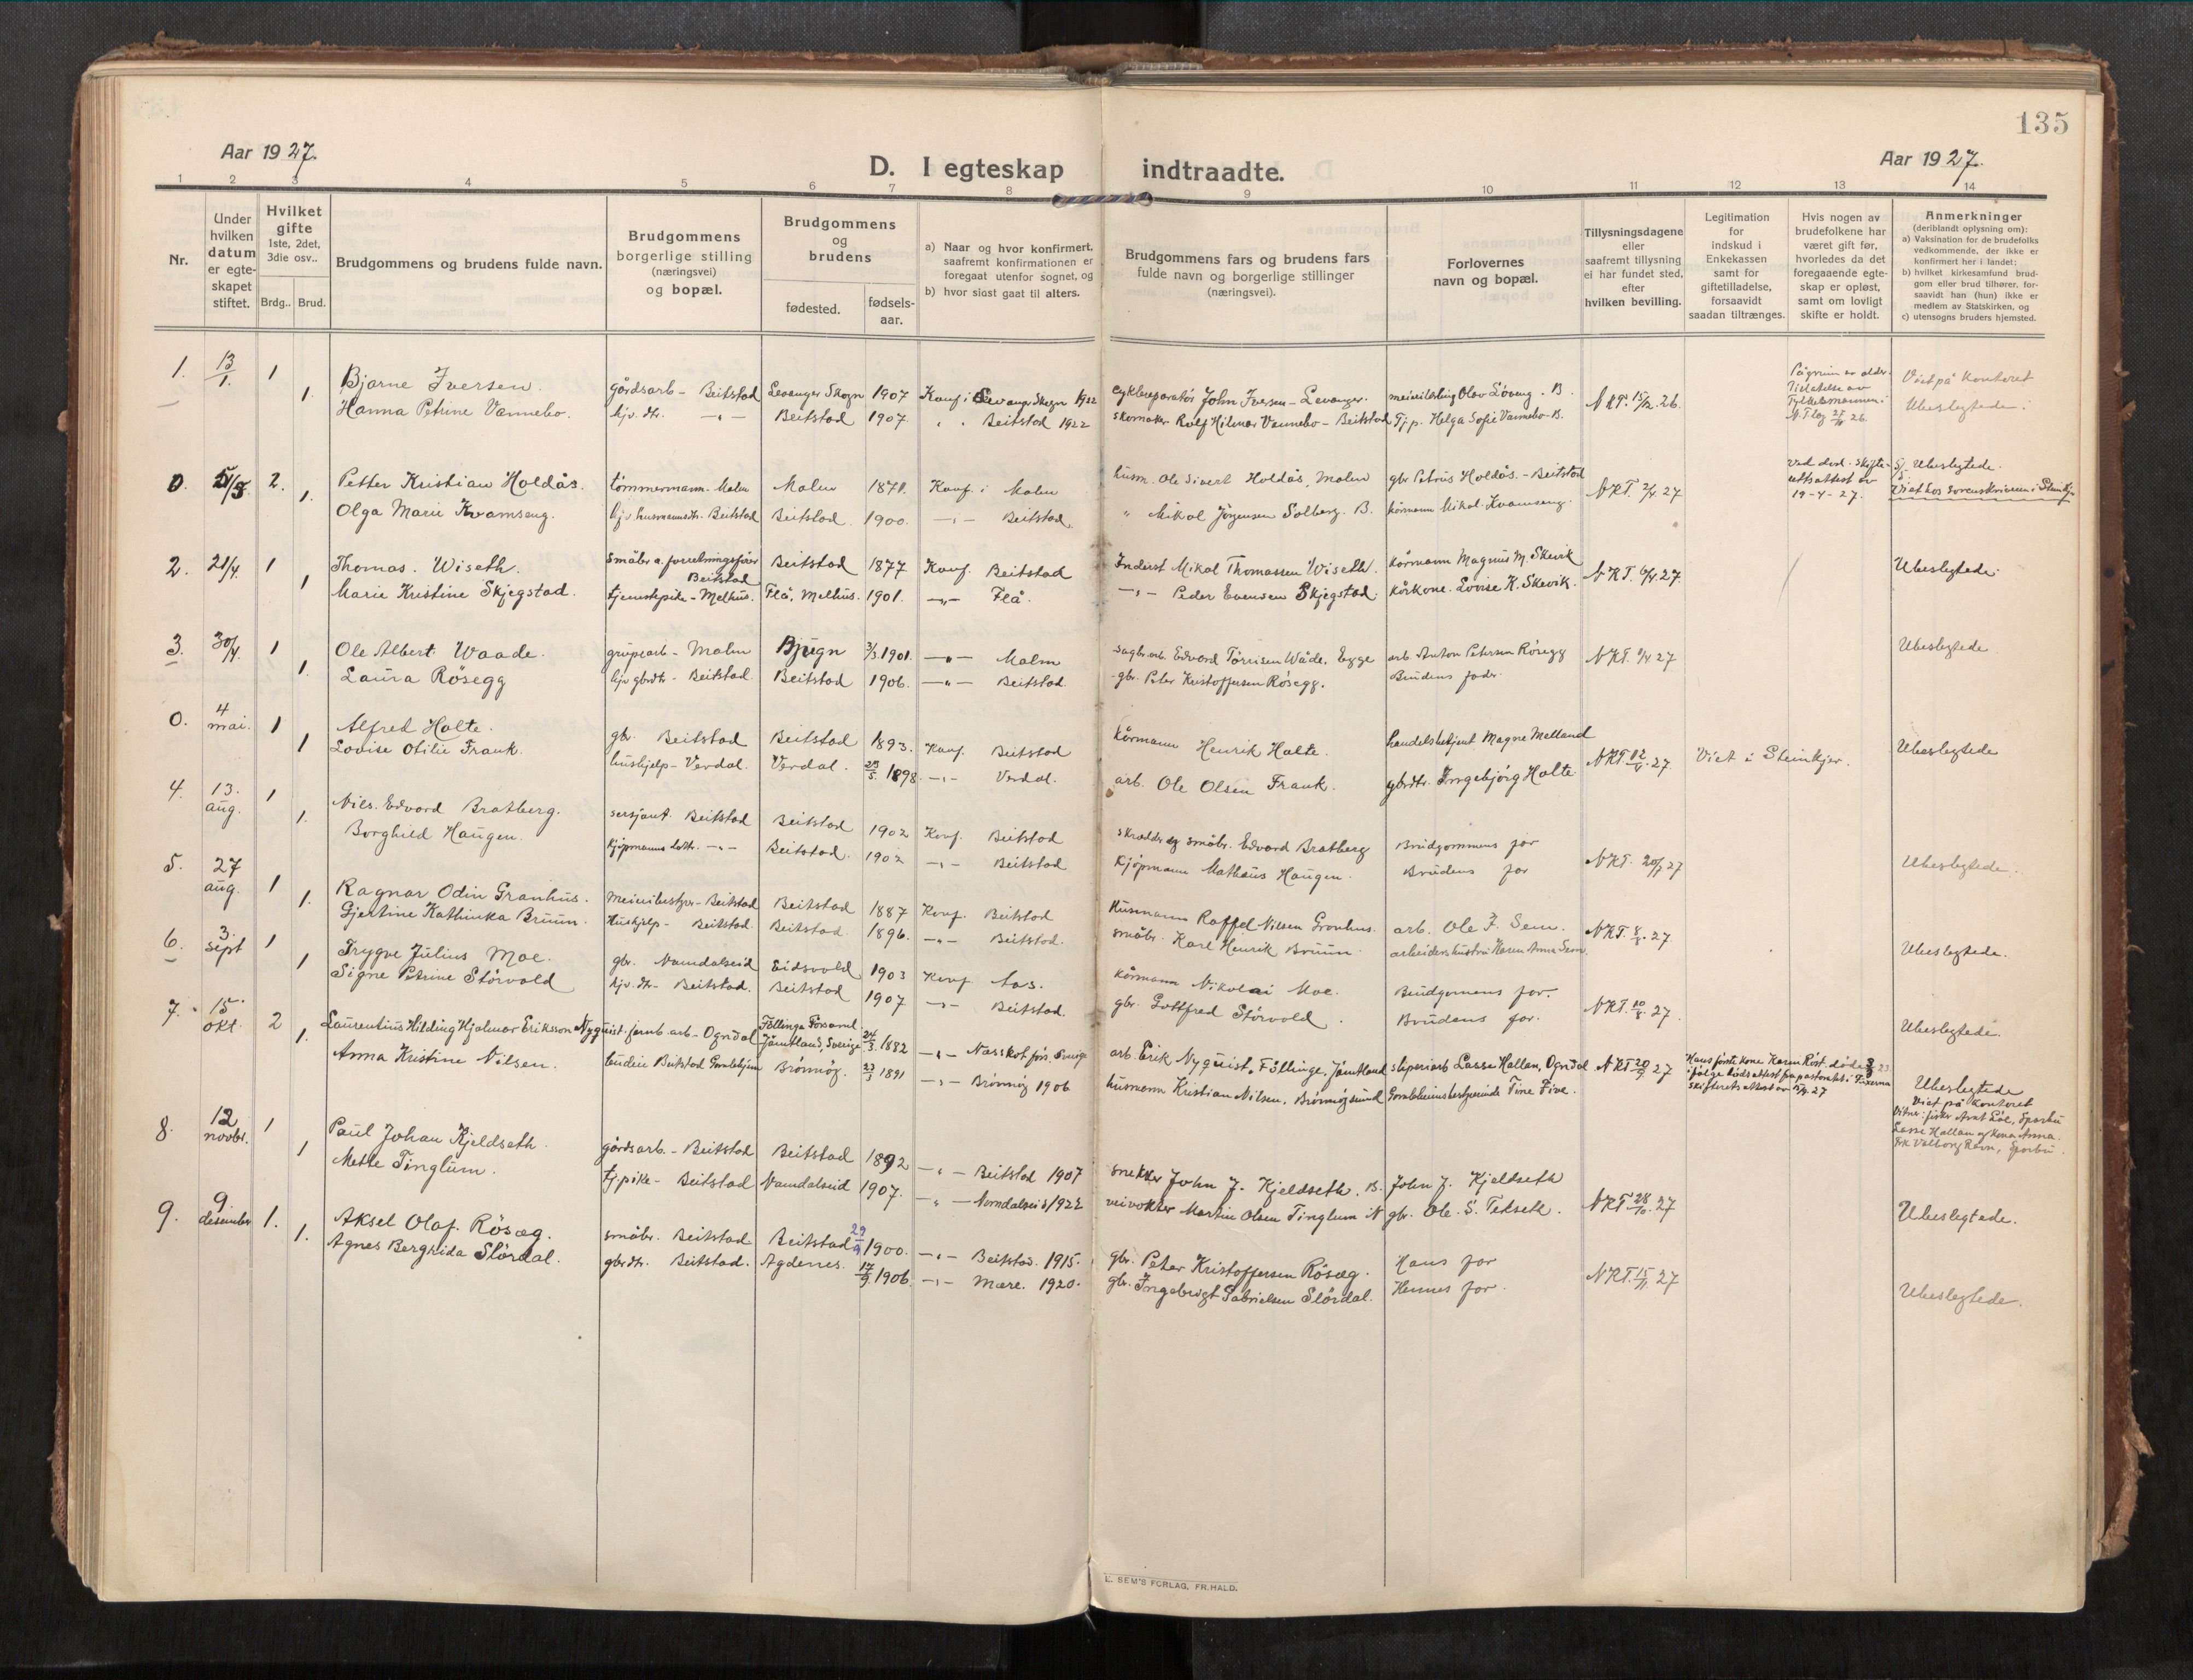 135
Aar 1927.
D. I egteskap indtraadte.
Aar 1927.
1 2 3 4 5 6 7 8 9 10 11 12 13 14
Nr.
Under hvilken datum er egte-skapet stiftet.
Hvilket gifte 1ste, 2det, 3die osv..
Brdg.. Brud.
Brudgommens og brudens fulde navn.
Brudgommens borgerlige stilling (næringsvei) og bopæl.
Brudgommens og brudens
fødested.
fødsels-aar.
a) Naar og hvor konfirmert, saafremt konfirmationen er foregaat utenfor sognet, og
b) hvor sidst gaat til alters.
Brudgommens fars og brudens fars fulde navn og borgerlige stillinger (næringsvei).
Forlovernes navn og bopæl.
Tillysningsdagene eller saafremt tillysning ei har fundet sted, efter hvilken bevilling.
Legitimation for indskud i Enkekassen samt for giftetilladelse, forsaavidt saadan tiltrænges.
Hvis nogen av brudefolkene har været gift før, hvorledes da det foregaaende egte-skap er opløst, samt om lovligt skifte er holdt.
Anmerkninger (deriblandt oplysning om):
a) Vaksination for de brudefolks vedkommende, der ikke er konfirmert her i landet;
b) hvilket kirkesamfund brud-gom eller brud tilhører, for-saavidt han (hun) ikke er medlem av Statskirken, og
c) utensogns bruders hjemsted.
1. 13/1. 1 Bjarne Iversen. gårdsarb - Beitstad Levanger Skogn 1907 Konf. i Levanger Skogn 1922 cykkelreparatör John Iversen - Levanger. Olav - B. NRT. 15/12. 26. Viet på kontoret
1. Hanna Petrine Vannebo. hjv. dtr. -"- Beitstad 1907. " . Beitstad 1922 skomaker Rolf Hilmar Vannebo - Beitstad Tj.p. Helga Sofie Vannebo - B. Ubeslegtede.
0. 5/5. 2. Petter Kristian Holdås. tömmermann - Malm Malm 1871. Konf. i Malm husm. Ole Sivert Holdås, Malm gbr Petrus Holdås. - Beitstad NRT. 2/4 27 Ved död. Skifte-rettsattest av 19-4-27. Ubeslegtede.
1. Olga Marie Kvamseng. hjv husmannsdtr. Beitstad Beitstad 1900. -"- Beitstad. " Mikal Jörgensen Solberg. B. körmann Mikal Kvamseng. Viet hos sorenskriveren i Steinkjer
2. 21/4. 1 Thomas. Wiseth. Småbr. & forretningsförer Beitstad Beitstad 1877 Konf. Beitstad Inderst Mikal Thomassen Wiseth. körmann Magnus M. Skevik NRT. 6/4. 27 Ubeslegtede.
1 Marie Kristine Skjegstad. tjenestepike - Melhus. Flå, Melhus. 1901. -"- Flå. -"- Peder Evensen Skjegstad. körkone. Lovise K. Skevik.
3. 30/4. 1 Ole Albert Waade. grubearb - Malm Bjugn 3/3. 1901. -"- Malm sagbr.arb. Edvard Törrisen Wåde. Egge arb. Anton Petersen Rösegg NRT. 9/4 27 Ubeslegtede
1. Laura Rösegg hjv gbrdtr - Beitstad Beitstad 1906. -"- Beitstad. gbr. Peter Kristoffersen Rösegg. Brudens fader.
0. 4 mai. 1 Alfred Holte. gbr. Beitstad Beitstad 1893. Konf. Beitstad körmann Henrik Holte. handelsbetjent Magne Melland NRT. 12/4. 27. Viet i Steinkjer. Ubeslegtede
1 Lovise Otilie Frank. hushjelp - Verdal. Verdal. 1898. -"- Verdal. arb. Ole Olsen Frank. gbrdtr. Ingebjörg Holte
4. 13. aug. 1 Nils. Edvard Bratberg. sersjant. Beitstad Beitstad 1902 Konf. Beitstad skrædder og småbr. Edvard Bratberg Brudgommens far NRT. 20/7 27 Ubeslegtede.
1. Borghild Haugen. kjöpmanns dtr. -"- Beitstad. 1902 -"- Beitstad kjöpmann Mathæus Haugen. Brudens far
5. 27 aug. 1 Ragnar Odin Granhus. meieribestyr - Beitstad Beitstad 1887 Konf. Beitstad Husmann Raffel Nilsen Granhus. arb. Ole J. Sem. NRT. 8/8. 27. Ubeslegtede.
1. Gjertine Kathinka Bruun. Hushjelp - Beitstad. Beitstad 1896. -"- Beitstad. småbr. Karl Henrik Bruun arbeiderhustru Karen Anna Sem.
6. 3. sept 1 Trygve Julius Moe. gbr. Namdalseid Eidsvold 1903 Konf Aas. körmann Nikolai Moe. Brudgomens far. NRT. 10/8. 27 Ubeslegtede.
1 Signe Petrine Störvold hjv. dtr - Beitstad. Beitstad 1907 -"- Beitstad. gbr. Gottfred Störvold. Brudens far.
7. 15 okt. 2 Laurentius Hilding Hjalmar Eriksson Nyquist. jernb. arb - Ogndal Föllinge Forsaml. Jämtland, Sverige 24/3. 1882 -"- Nasskot förs. Sverige arb. Erik Nyquist, Föllinge, Jämtland sliperiarb Lasse Hallan, Ogndal NRT 20/9 27 Hans förste kone Karen Röst döde ifölge dödsattest fra pastoratet i skifteretsattest av 27 Ubeslegtede
1. Anna Kristine Nilsen. budeie Beitstad Gamlehjem Brönnöy. 23/3 1891 -"- Brönnöy 1906 husmann Kristian Nilsen. Brönnöysund Gamlehjemsbestyrerinde Tine Five. Viet på kontoret
Lasse Hallan og kona Anna. frk Valborg Ravn, Sparbu
8. 12 novbr. 1 Paul Johan Kjeldseth. gårdsarb. - Beitstad Beitstad 1892 -"- Beitstad 1907 snekker John J. Kjeldseth. B. John J. Kjeldseth NRT 28/10. 27 Ubeslegtede.
1 Mette Tinglum. tj.pike - Beitstad Namdalseid 1907. -"- Namdalseid 1922 veivokter Martin Olsen Tinglum N gbr. Ole. S. Tetseth.
9. 9 desember 1. Aksel Olaf. Rösæg. småbr. Beitstad. Beitstad 29/9 1900. -"- Beitstad. 1915. gbr. Peter Kristoffersen Rösæg. Hans far NRT. 15/11. 27 Ubeslegtede.
1. Agnes Berghida Slördal. gbrdtr. Beitstad. Agdenes. 17/9. 1906. -"- Mære. 1920. gbr. Ingebrigt Gabrielsen Slördal. Hennes far.
E. SEM'S FORLAG, FR.HALD.